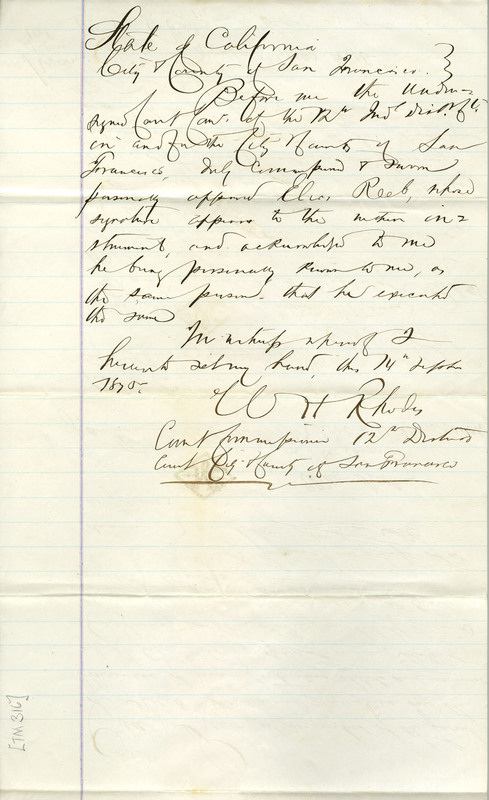 State of California
City & County of San Francisco. }
Before me the Under=
signed Court Com. of the 12th Jud. Dist. Ct.
in and for the City & County of San
Francisco, duly Commissioned & sworn
personally appeared Elias Reeb, whose
signature appears to the within in=
strument, and acknowledged to me
he being personally known to me, as
the same person that he executed
the same
In witness whereof I
hereunto set my hand, this 14th Septbr
1875.
W H Rhodes
Court Commissioner 12th District
Court City & County of San Francisco
[TM 316]